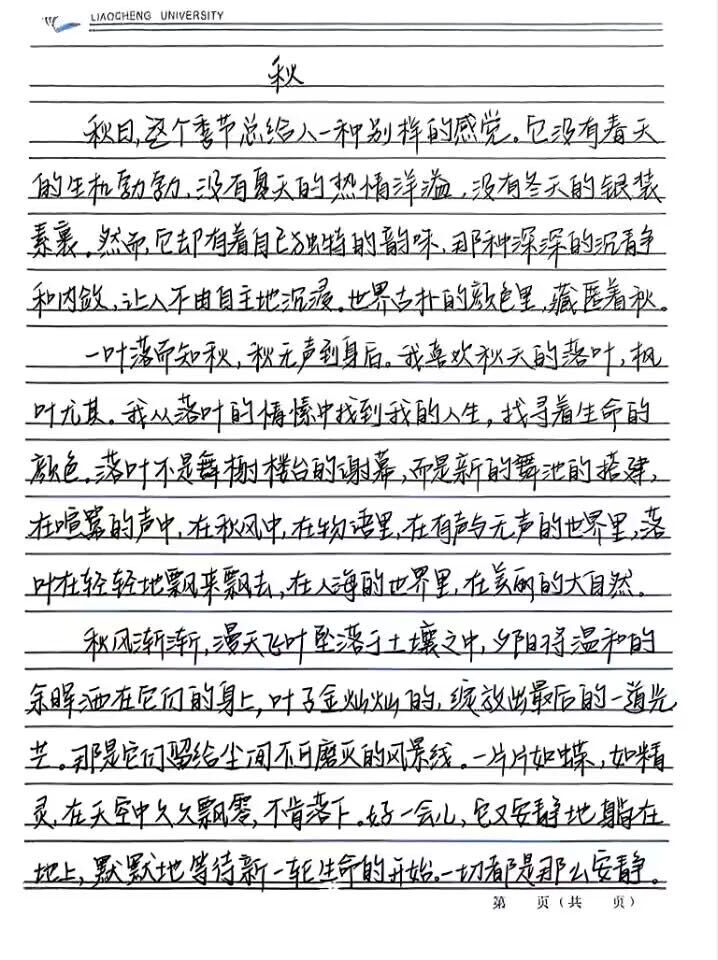 LIAOCHENG UNIVERSITY
秋
秋日,这个季节总给人一种别样的感觉。它没有春天
的生机勃勃,没有夏天的热情洋溢,没有冬天的银装
素裹。然而,它却有着自己独特的韵味,那种深深的沉静
和内敛,让人不由自主地沉浸。世界古朴的颜色里,藏匿着秋。
一叶落而知秋,秋无声到身后。我喜欢秋天的落叶,枫
叶尤其。我从落叶的情愫中找到我的人生,找寻着生命的
颜色。落叶不是舞榭楼台的谢幕,而是新的舞池的搭建,
在喧嚣的声中,在秋风中,在物语里,在有声与无声的世界里,落
叶在轻轻地飘来飘去,在人海的世界里,在美丽的大自然。
秋风渐渐,漫天飞叶坠落于土壤之中,夕阳将温和的
余晖洒在它们的身上,叶子金灿灿的,绽放出最后的一道光
芒。那是它们留给尘间不可磨灭的风景线。一片片如蝶,如精
灵,在天空中久久飘零,不肯落下。好一会儿,它又安静地躺在
地上,默默地等待新一轮生命的开始。一切都是那么安静。
第 页(共 页)